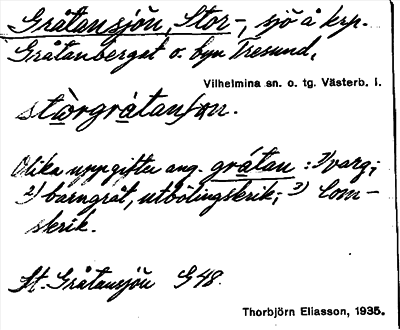 Gråtansjön, Stor-, sjö å krp.
Gråtanberget o. byn Tresund,
Vilhelmina sn. o. tg. Västerb. l.
Olika uppgifter ang. gråtan: 1) varg;
2) barngråt, utbölingskrik; 3) lom-
skrik.
St. Gråtansjön G 48.
Thorbjörn Eliasson, 1935.